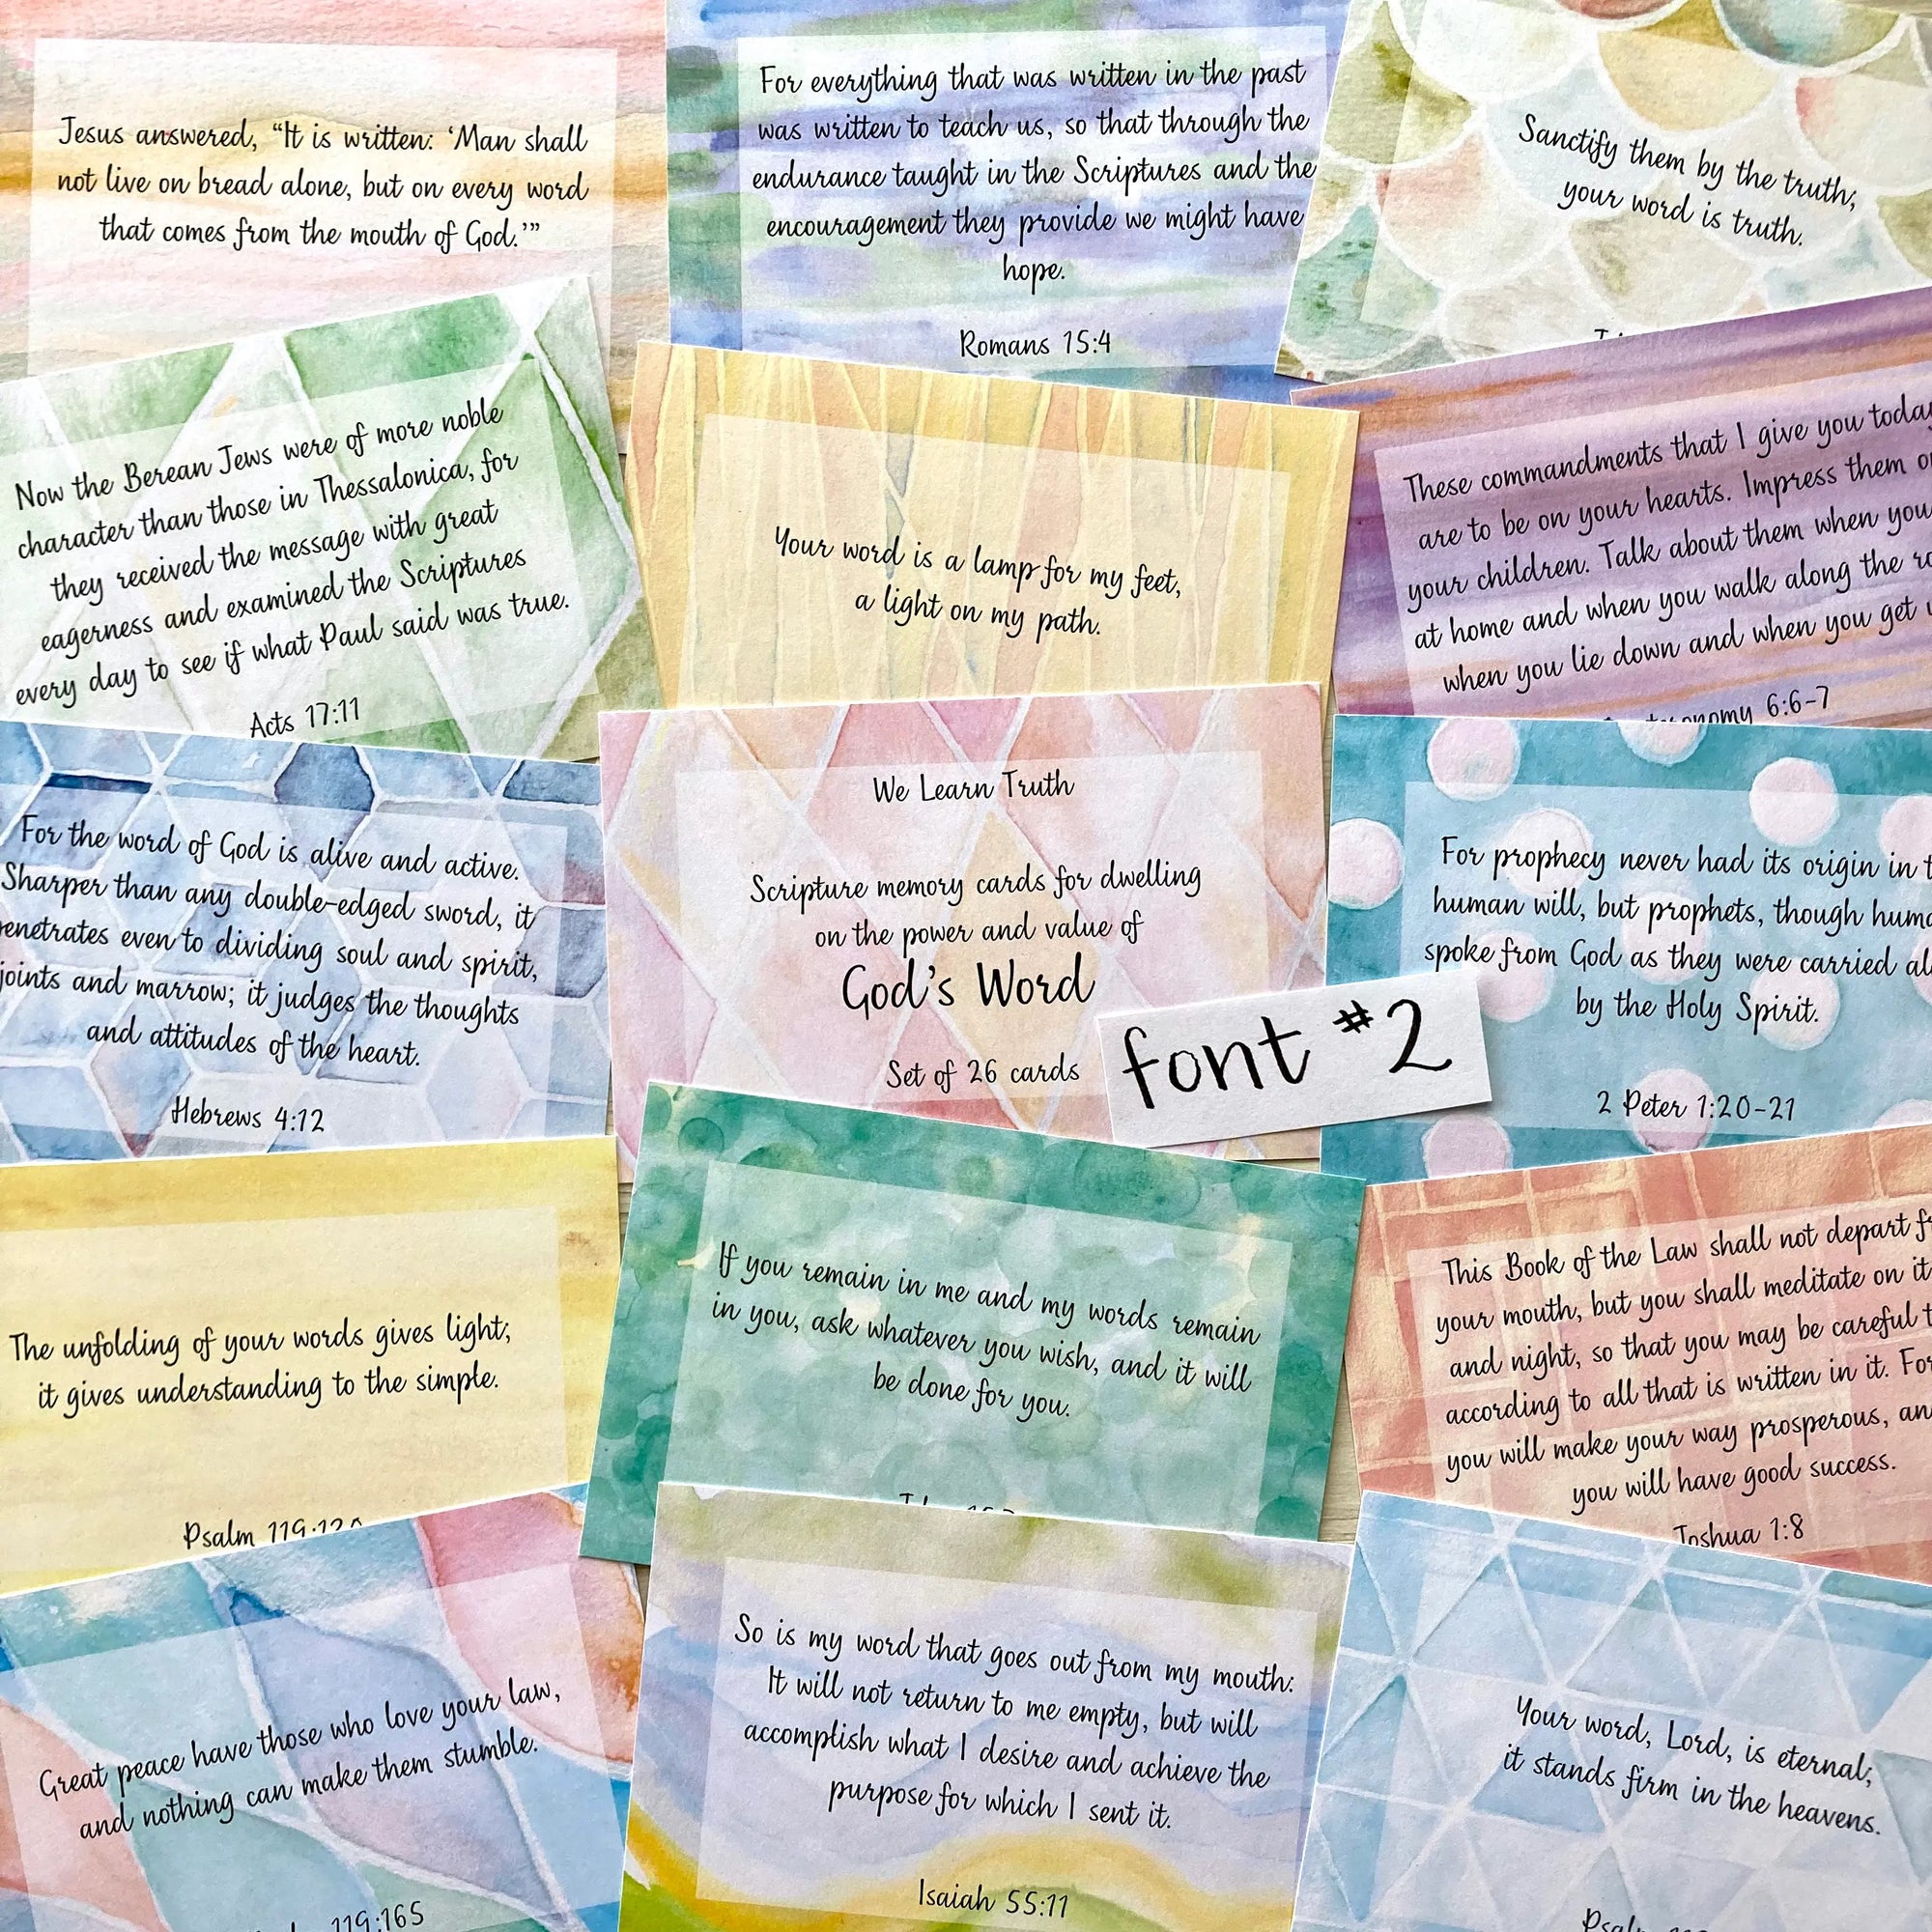 Jesus answered, “It is written: ‘Man shall
not live on bread alone, but on every word
that comes from the mouth of God.’”
For everything that was written in the past
was written to teach us, so that through the
endurance taught in the Scriptures and the
encouragement they provide we might have
hope.
Romans 15:4
Sanctify them by the truth;
your word is truth.
Now the Berean Jews were of more noble
character than those in Thessalonica, for
they received the message with great
eagerness and examined the Scriptures
every day to see if what Paul said was true.
Acts 17:11
Your word is a lamp for my feet,
a light on my path.
These commandments that I give you today
are to be on your hearts. Impress them
your children. Talk about them when you
at home and when you walk along the
when you lie down and when you get
6:6-7
For the word of God is alive and active.
Sharper than any double-edged sword, it
penetrates even to dividing soul and spirit,
joints and marrow; it judges the thoughts
and attitudes of the heart.
Hebrews 4:12
We Learn Truth
Scripture memory cards for dwelling
on the power and value of
God’s Word
Set of 26 cards
font #2
For prophecy never had its origin in
human will, but prophets, though
spoke from God as they were carried
by the Holy Spirit.
2 Peter 1:20-21
The unfolding of your words gives light;
it gives understanding to the simple.
Psalm
If you remain in me and my words remain
in you, ask whatever you wish, and it will
be done for you.
This Book of the Law shall not depart
your mouth, but you shall meditate on it
and night, so that you may be careful
according to all that is written in it. For
you will make your way prosperous, and
you will have good success.
Joshua 1:8
Great peace have those who love your law,
and nothing can make them stumble.
119:165
So is my word that goes out from my mouth:
It will not return to me empty, but will
accomplish what I desire and achieve the
purpose for which I sent it.
Isaiah 55:11
Your word, Lord, is eternal;
it stands firm in the heavens.
Psalm